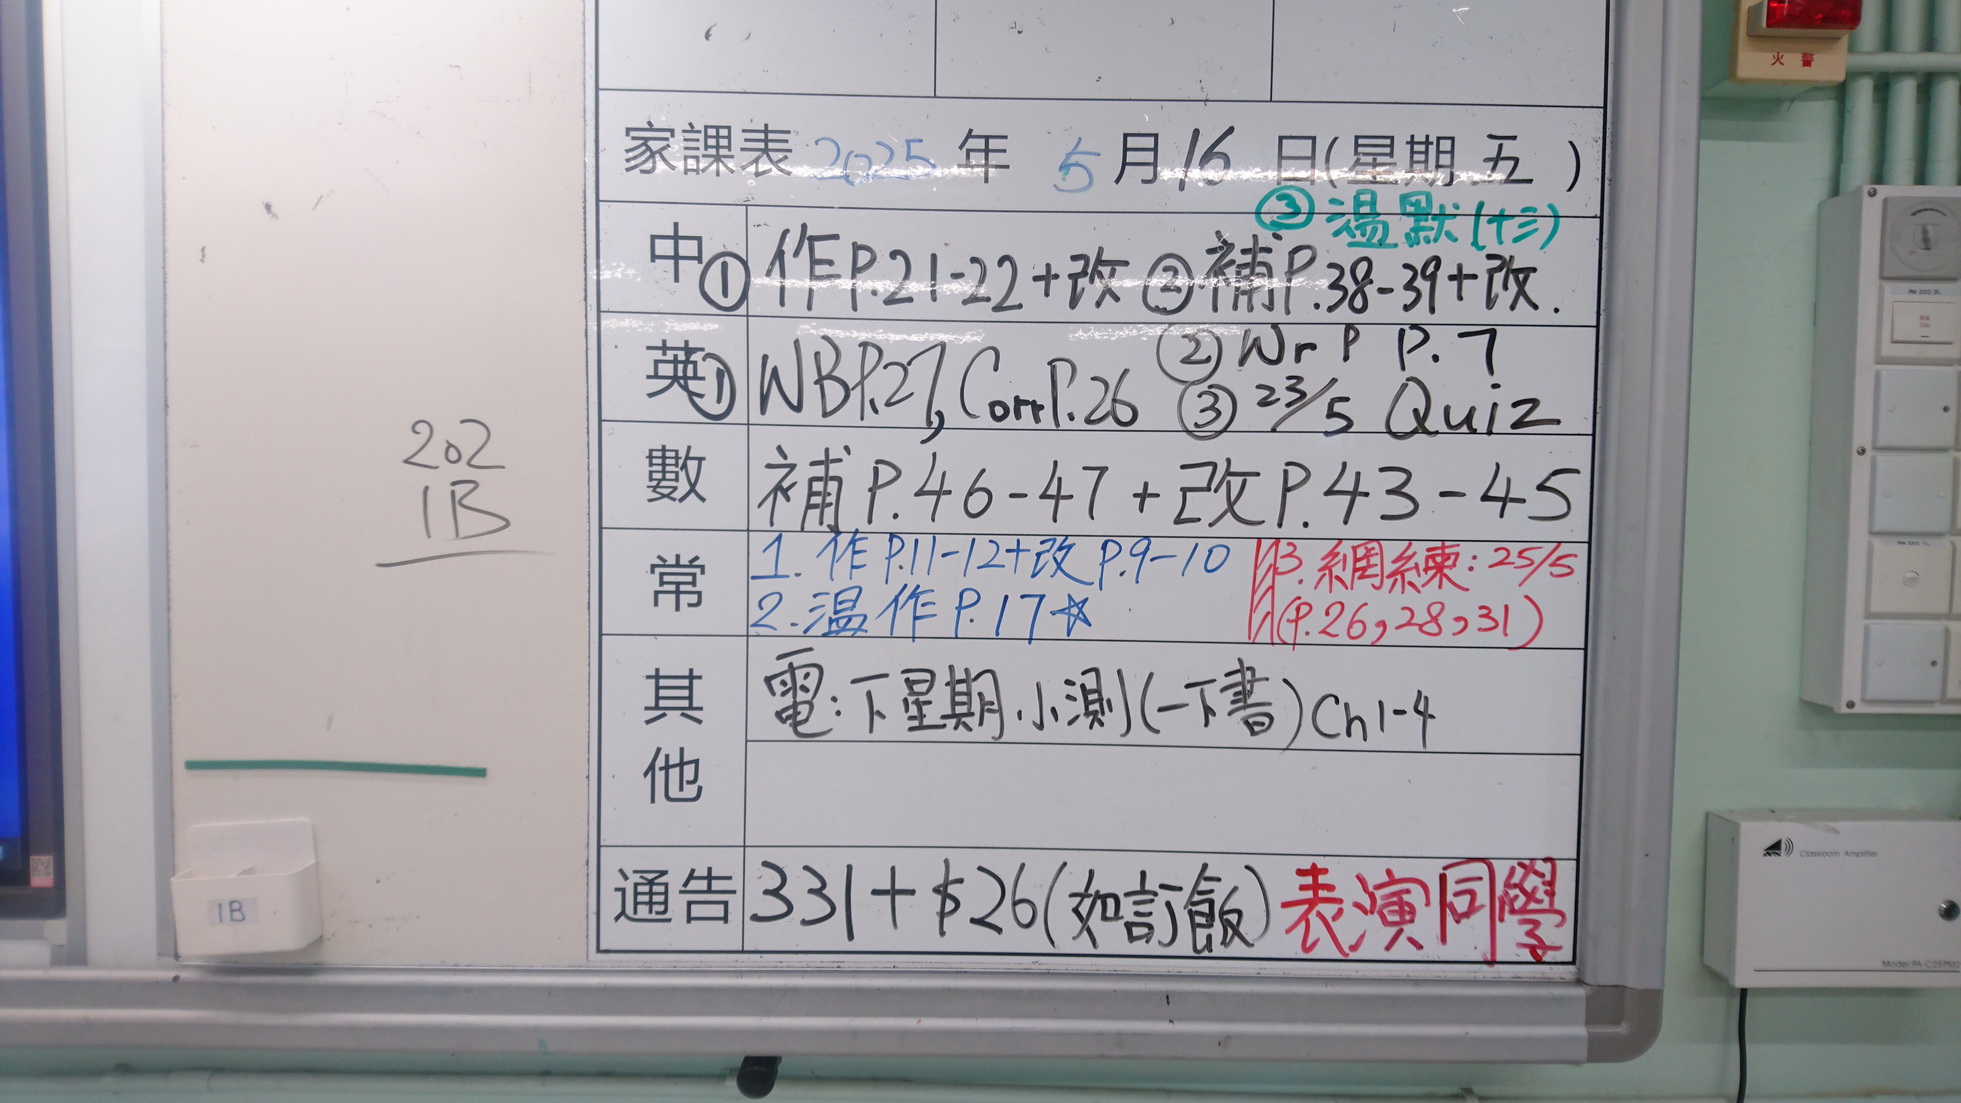 火警
家課表 2025 年 5 月 16 日(星期 五 )
③ 溫默(十三)
中 ① 作P.21-22+改 ② 補P.38-39+改.
英 ① WBP.27, CorrP.26 ② Wr P P.7
③ 23/5 Quiz
數 補 P.46-47 + 改P.43-45
常 1. 作P.11-12+改 P.9-10
2. 溫作P.17☆
3. 網練: 25/5
(P.26,28,31)
其他 電:下星期小測(一下書)Ch1-4
通告 331+$26(如訂飯) 表演同學
202
1B
1B
Classroom Amplifier